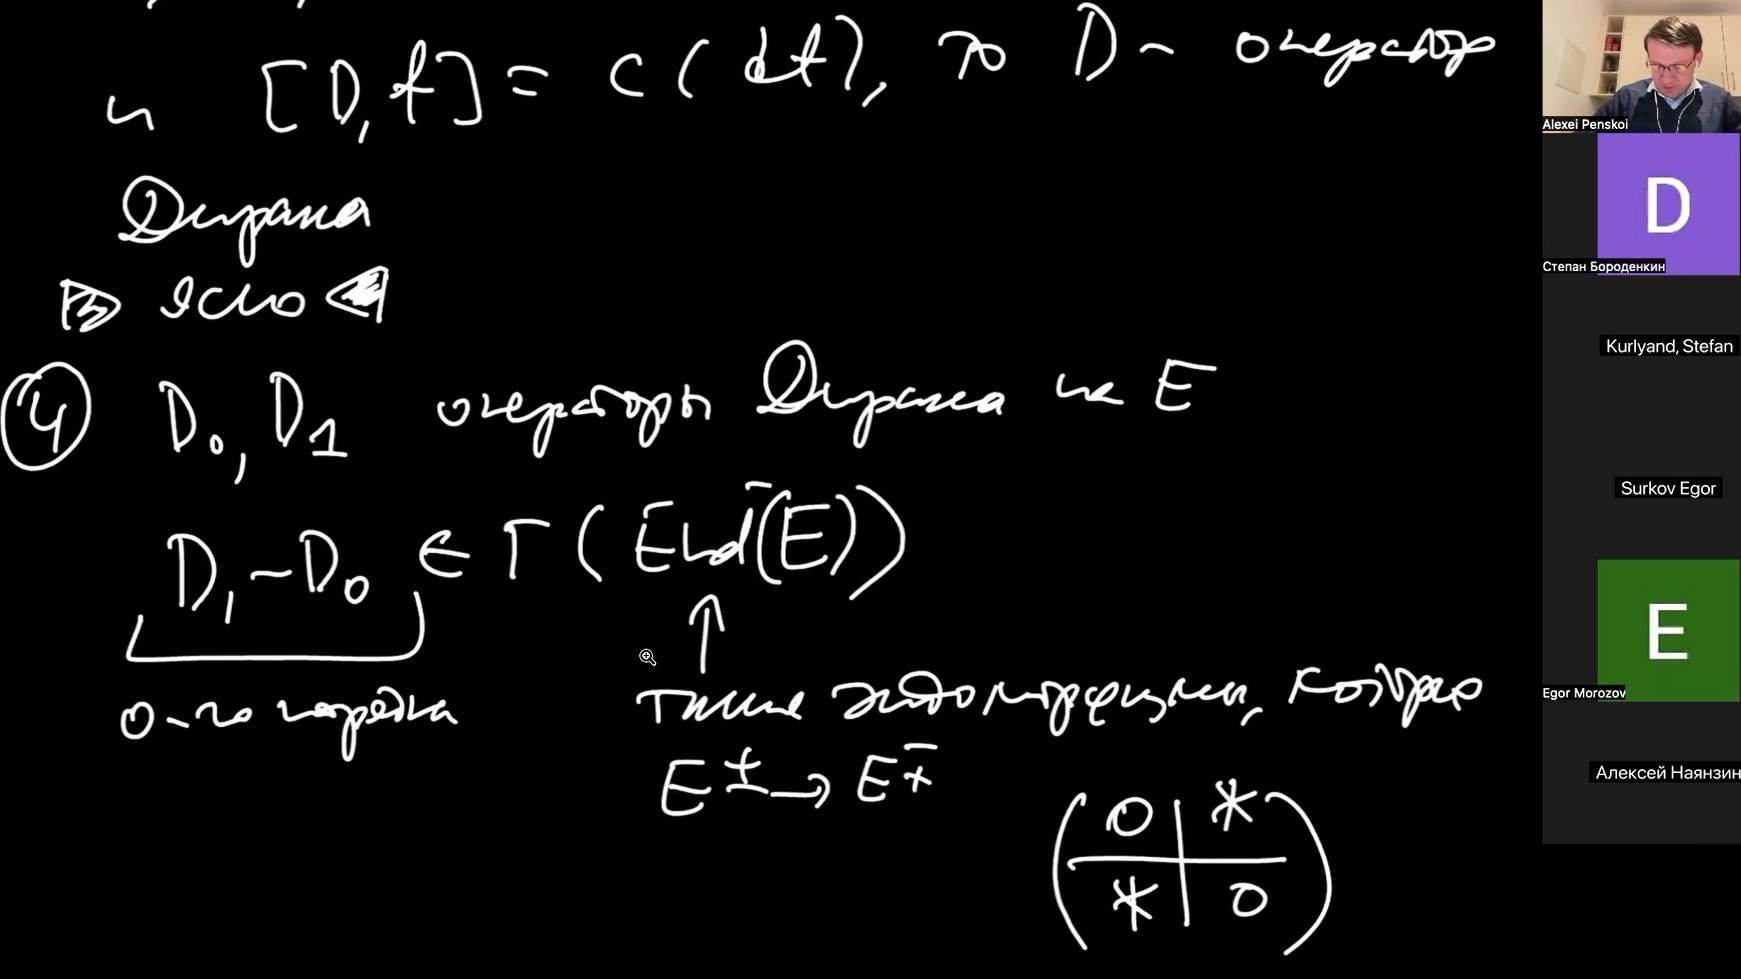 и [D, f] = c(df), то D - оператор
Дирака
▷ Ясно ◁
④ D₀, D₁ операторы Дирака на E
D₁ - D₀ ∈ Γ(End⁻(E))
↑
0-го порядка
такие эндоморфизмы, которые
E^± → E^∓
( 0 | * )
( * | 0 )
Alexei Penskoi
D
Степан Бороденкин
Kurlyand, Stefan
Surkov Egor
E
Egor Morozov
Алексей Наянзин